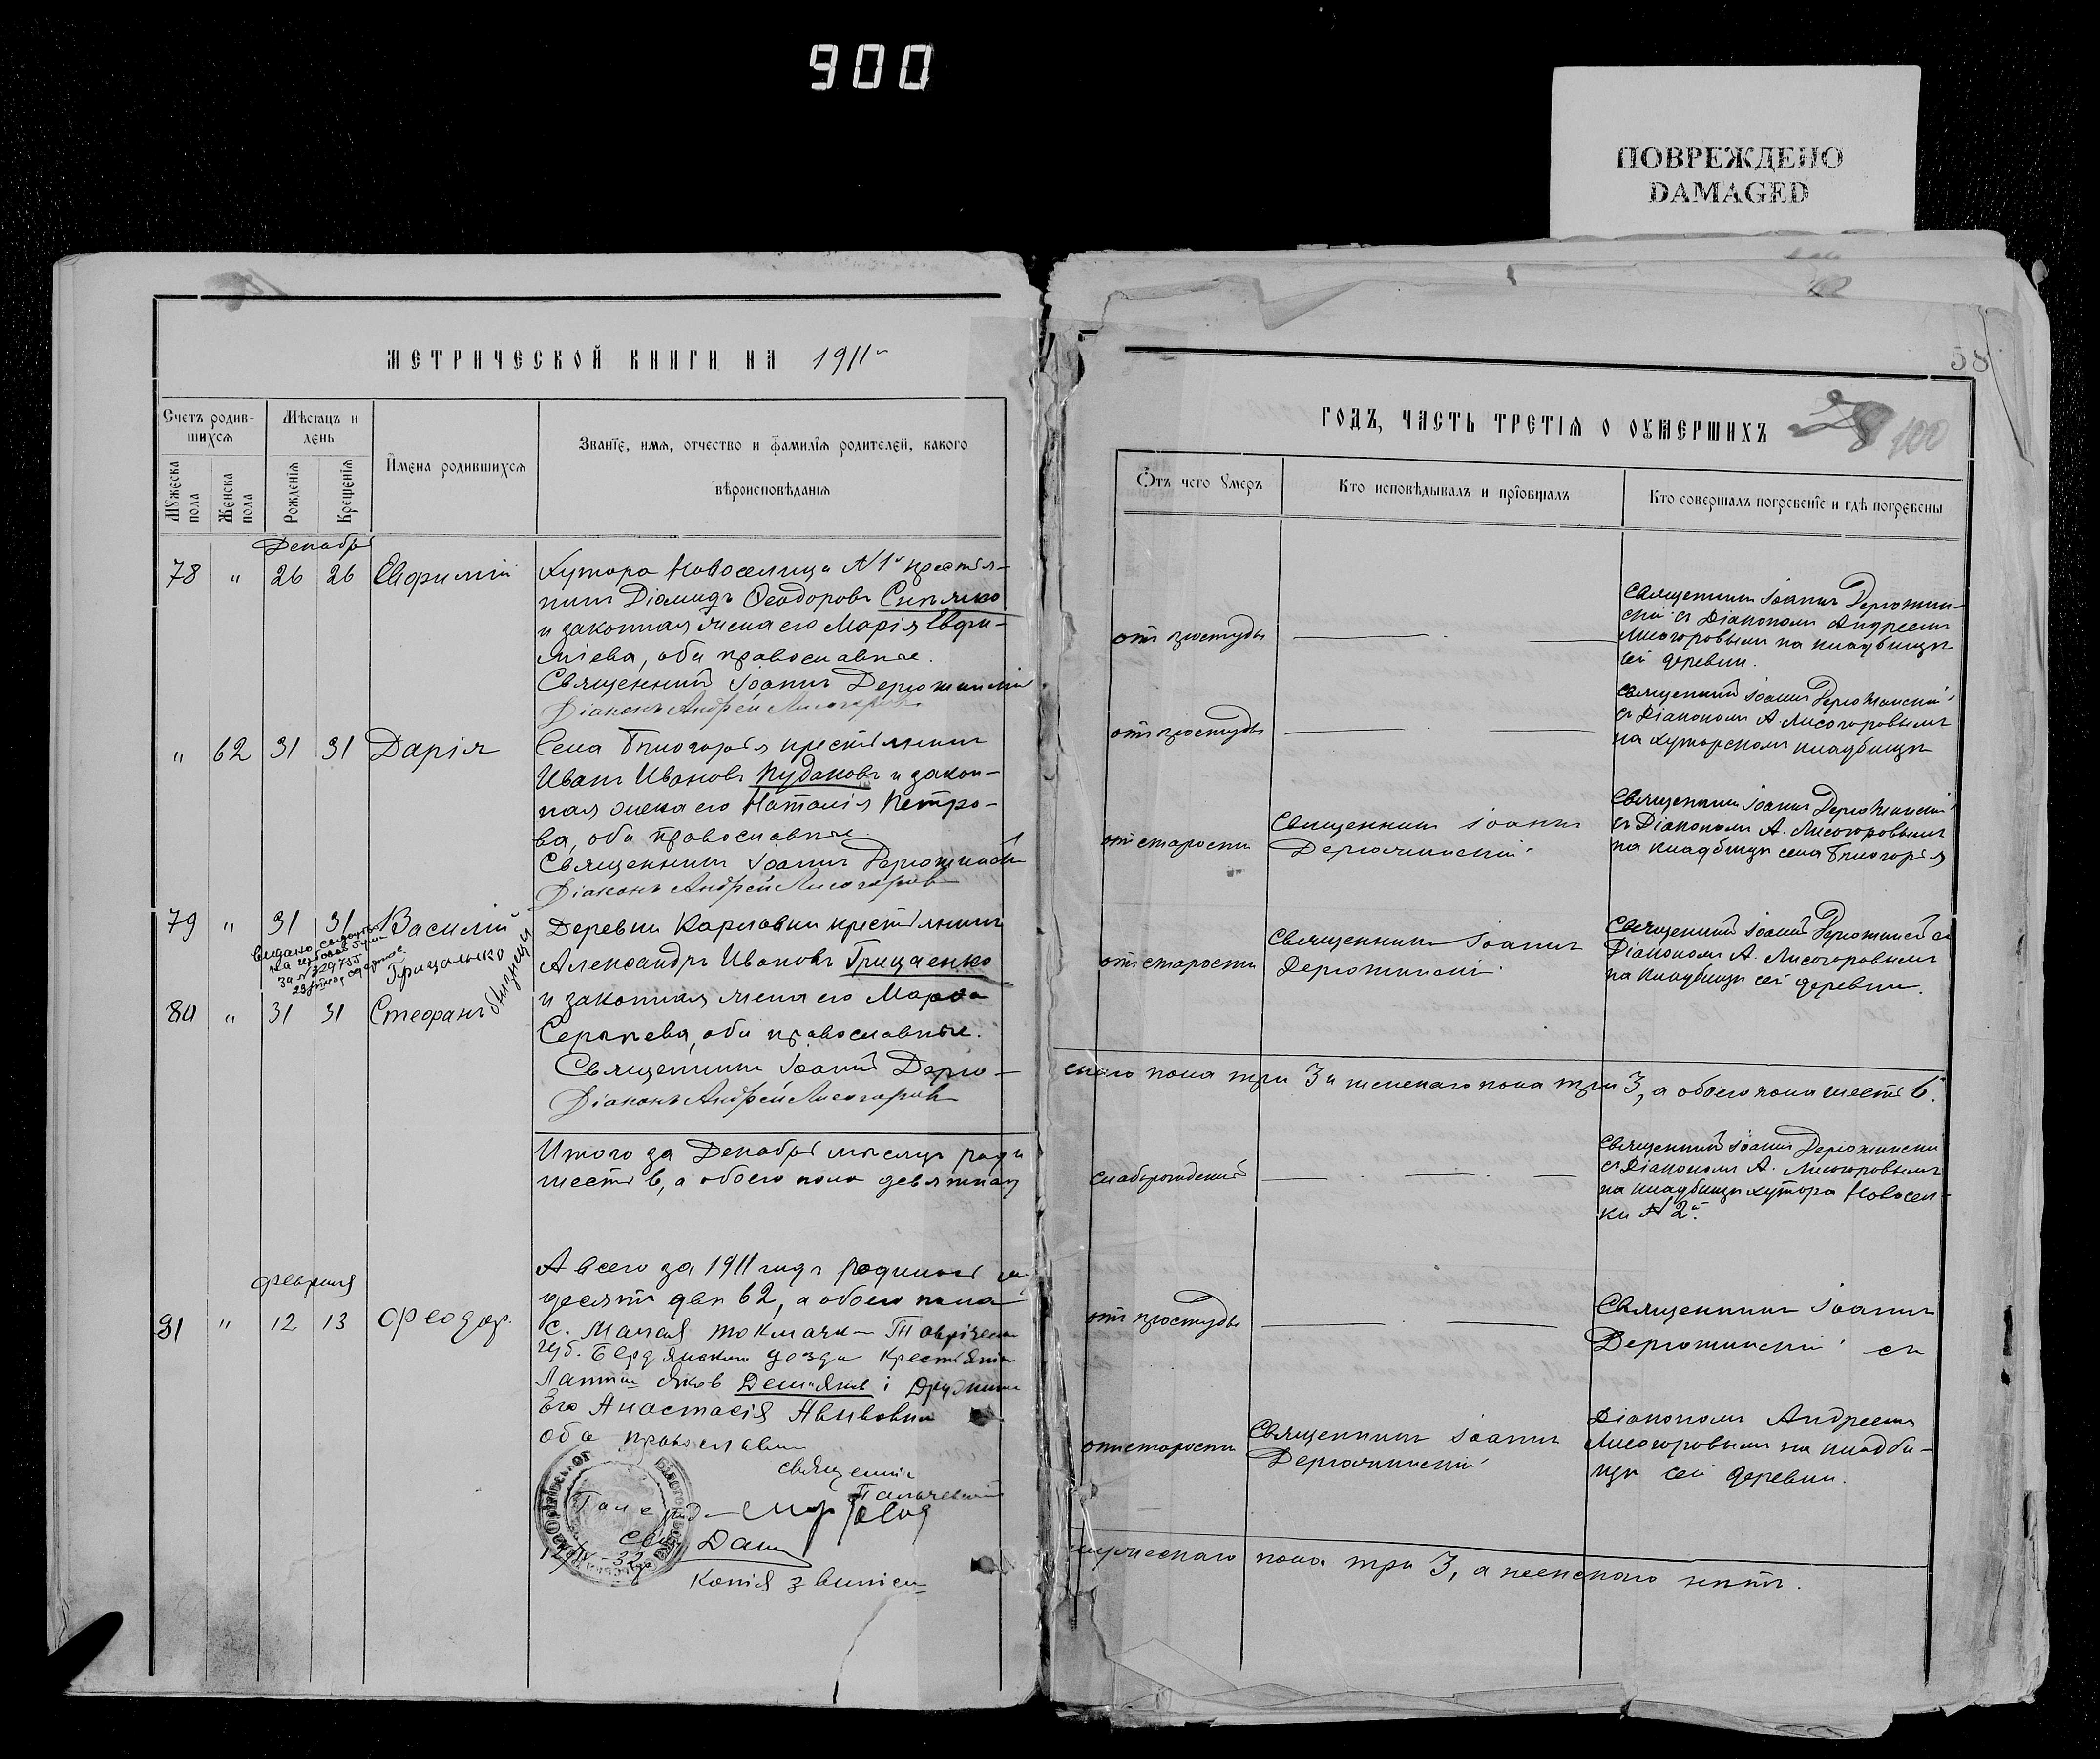 900
ПОВРЕЖДЕНО
DAMAGED
МЕТРИЧЕСКОЙ КНИГИ НА 1911
Счетъ родив-
шихся
Мѣсяцъ и
день
Имена родившихся
Званіе, имя, отчество и фамилія родителей, какого
вѣроисповѣданія
Мужеска
пола
Женска
пола
Рожденія
Крещенія
Декабрь
78 " 26 26 Евфимій
Хутора Новоселица №1 крестья-
нинъ Діамидъ Ѳеодоровъ
и законная жена его Марія Евфи-
міева, оба православные.
Священникъ Іоаннъ Дерюжинскій
Діаконъ Андрей Лисогоровъ
" 62 31 31 Дарія
Села Григорія крестьянинъ
Иванъ Ивановъ Кудаковъ и закон-
ная жена его Наталія Петро-
ва, оба православные
Священникъ Іоаннъ Дерюжинскій
Діаконъ Андрей Лисогоровъ
79 " 31 31 Василій
80 " 31 31 Стефанъ
близнецы
Грищенько
Деревни Карловки крестьянинъ
Александръ Ивановъ Грищенко
и законная жена его Марѳа
оба православные.
Священникъ Іоаннъ Дерю-
Діаконъ Андрей Лисогоровъ
Итого за Декабрь мѣсяцъ роди
шесть 6, а обоего пола девятнад
А всего за 1911 годъ родилось
десятъ два 62, а обоего пола
февраля
81 " 12 13 Феодор.
С. Малая Токмачка Таврiческ
губ. Бердянского уезда Крестьянин
Яков Демьянов і Дружина
Его Анастасія
Оба православн
священик
Копія з виписи
58
ГОДЪ, ЧАСТЬ ТРЕТІЯ О УМЕРШИХЪ
100
Отъ чего умеръ
Кто исповѣдывалъ и пріобщалъ
Кто совершалъ погребеніе и гдѣ погребены
отъ простуды
Священникъ Іоаннъ Дерюжин-
скій съ Діакономъ Андреемъ
Лисогоровымъ на кладбищѣ
сей деревни.
отъ простуды
Священникъ Іоаннъ Дерюжинскій
съ Діакономъ А. Лисогоровымъ
на хуторскомъ кладбищѣ
отъ старости
Священникъ Іоаннъ
Дерюжинскій
Священникъ Іоаннъ Дерюжинскій
съ Діакономъ А. Лисогоровымъ
на кладбищѣ села Григорія
отъ старости
Священникъ Іоаннъ
Дерюжинскій
Священникъ Іоаннъ Дерюжинскій съ
Діакономъ А. Лисогоровымъ
на кладбищѣ сей деревни.
скаго пола три 3 и женскаго пола три 3, а обоего пола шесть 6.
слаборожденный
Священникъ Іоаннъ Дерюжинскій
съ Діакономъ А. Лисогоровымъ
на кладбищѣ хутора Новосел-
ки № 2.
отъ простуды
Священникъ Іоаннъ
Дерюжинскій съ
отъ старости
Священникъ Іоаннъ
Дерюжинскій
Діакономъ Андреемъ
Лисогоровымъ на кладби-
щѣ сей деревни.
мужескаго пола три 3, а женскаго нѣтъ.